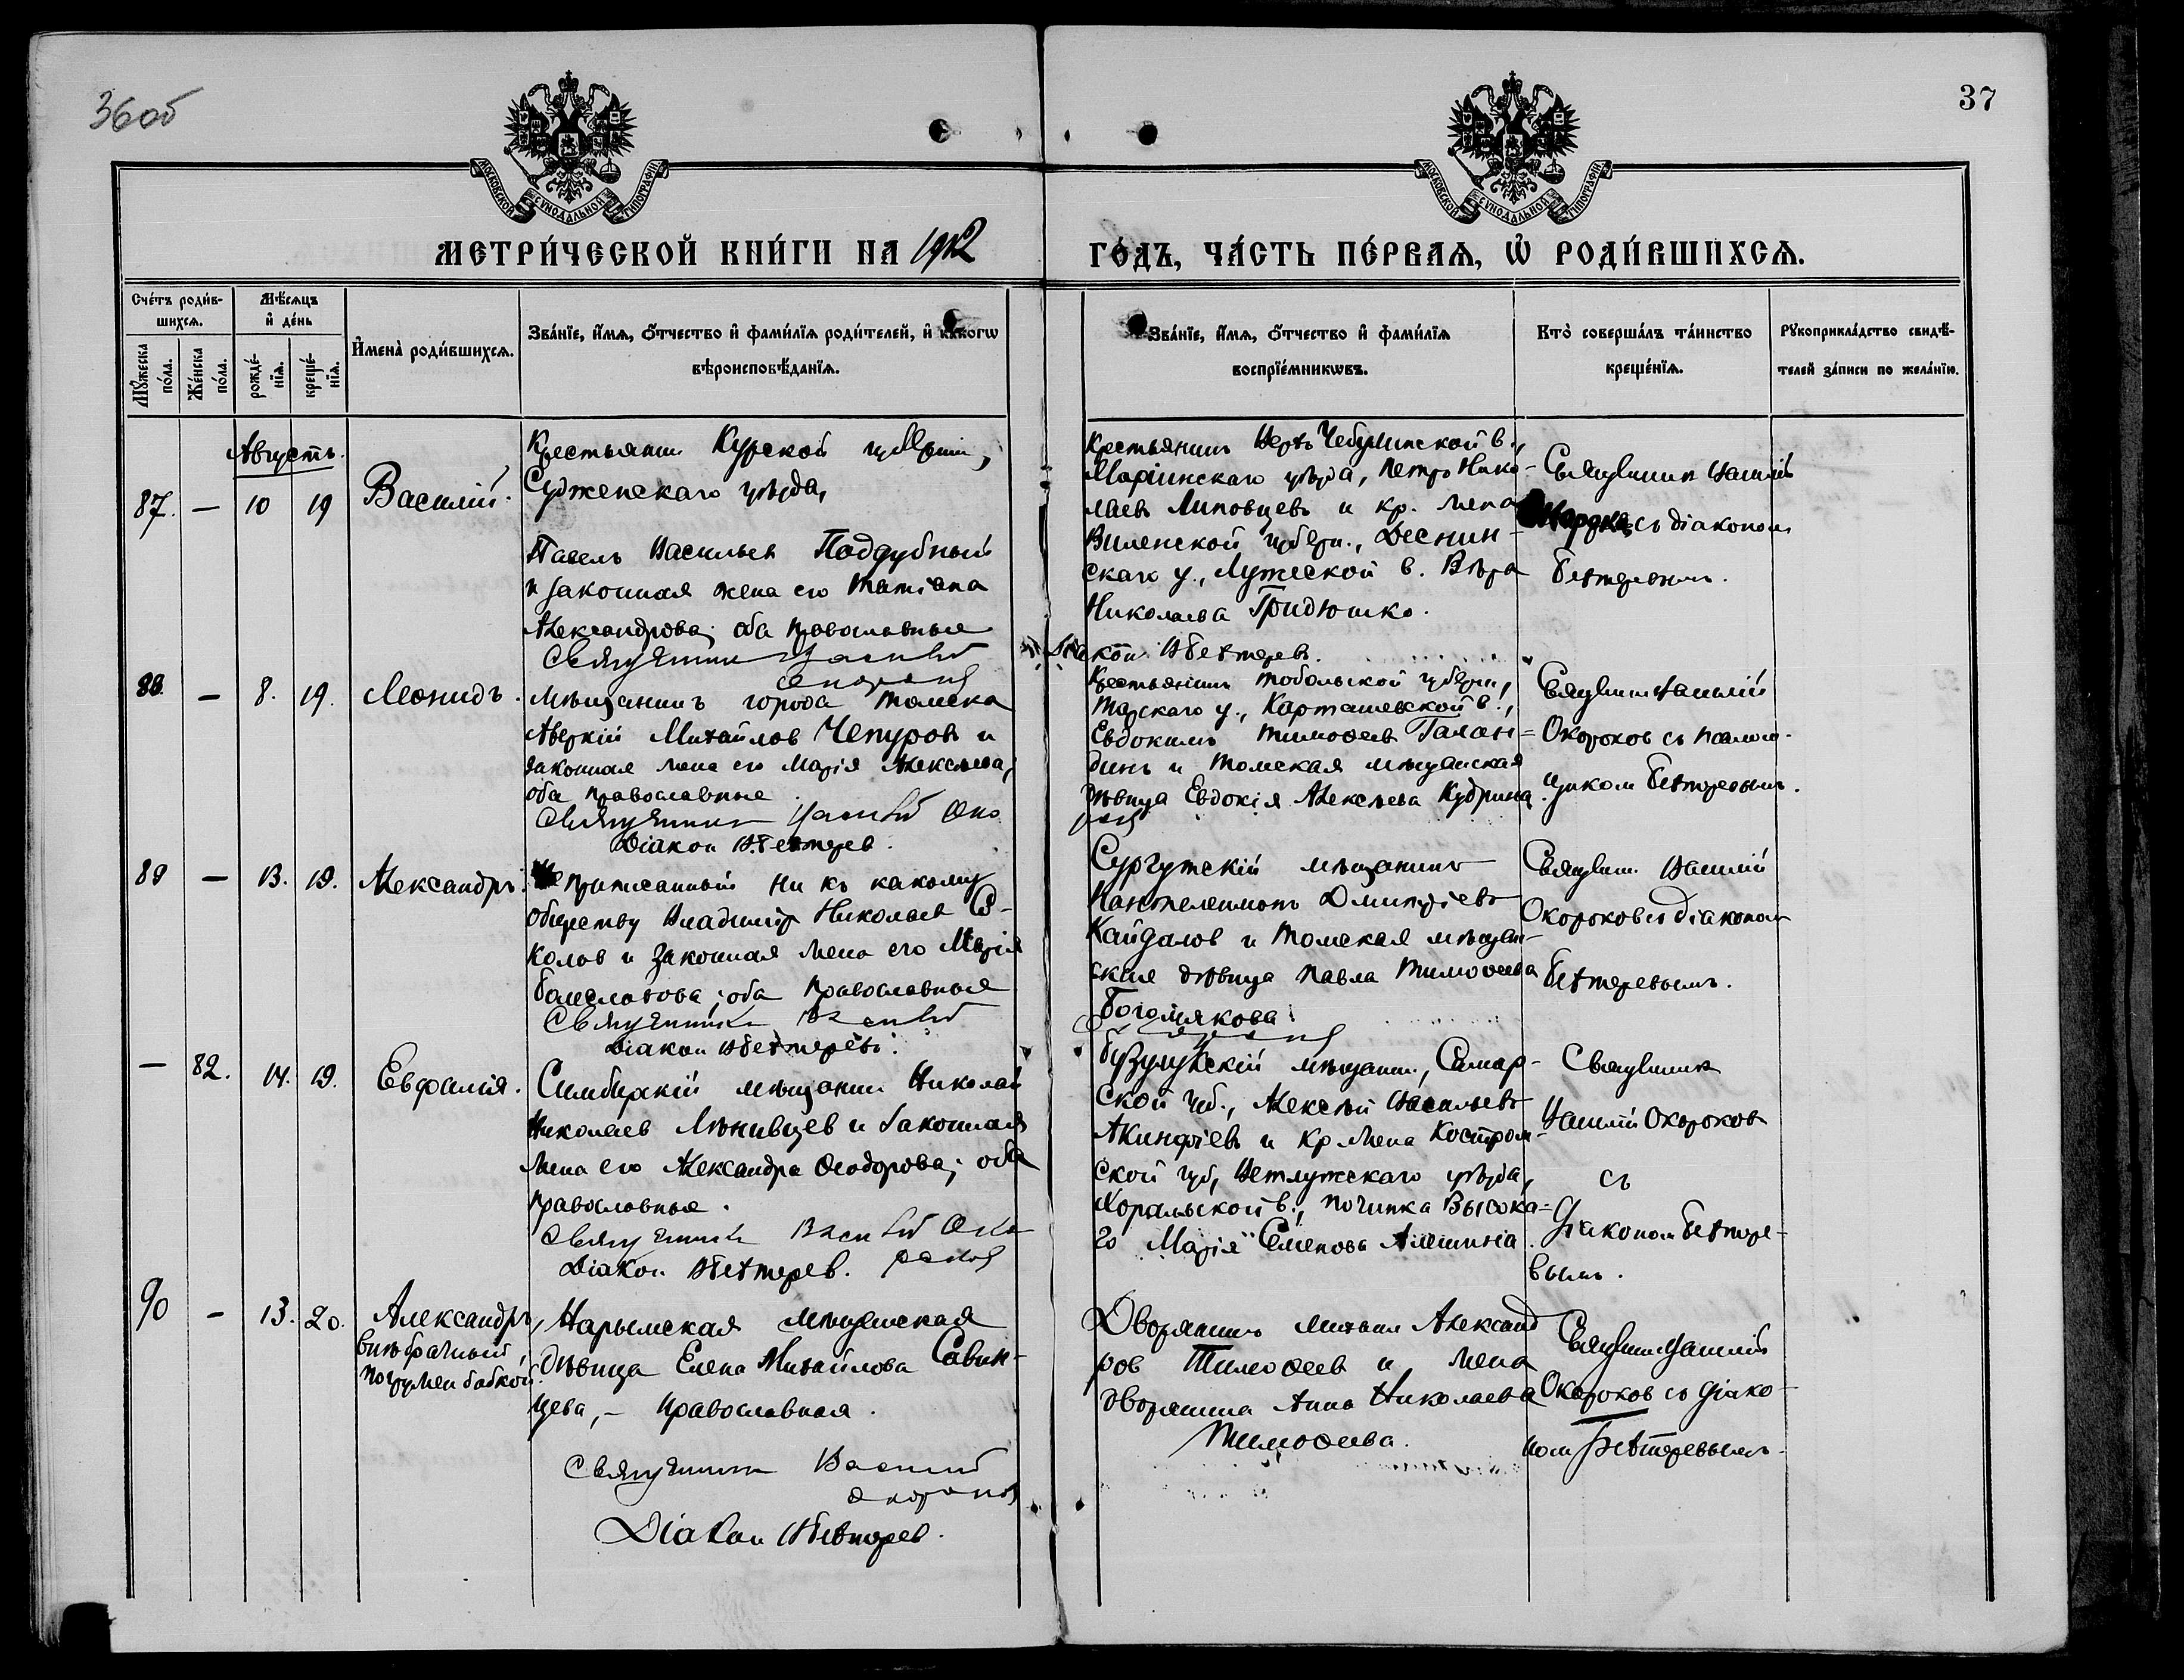 36об
37
МОСКОВСКОЙ СѴНОДАЛЬНОЙ ТИПОГРАФІИ
МОСКОВСКОЙ СѴНОДАЛЬНОЙ ТИПОГРАФІИ
МЕТРИ́ЧЕСКОЙ КНИ́ГИ НА 1912
ГО́ДЪ, ЧА́СТЬ ПЕ́РВАѦ, Ѡ҆ РОДИ́ВШИХСѦ.
Сче́тъ роди́в-
шихсѧ.
Мѣ́сѧцъ
и҆ де́нь
Мꙋ́жеска
по́ла.
Же́нска
по́ла.
рожде́-
нїѧ.
креще́-
нїѧ.
И҆мена̀ роди́вшихсѧ.
Зва́нїе, и҆́мѧ, ѻ҆́тчество и҆ фами́лїѧ роди́телей, и҆ како́гѡ
вѣроисповѣ́данїѧ.
Зва́нїе, и҆́мѧ, ѻ҆́тчество и҆ фами́лїѧ
воспрїе́мникѡвъ.
Кто̀ соверша́лъ та́инство
креще́нїѧ.
Рꙋкоприкла́дство свидѣ́-
телей за́писи по жела́нїю.
Августъ.
87. — 10 19 Василій.
Крестьянин Курской губерніи,
Судженскаго уѣзда,
Павелъ Васильев Поддубный
и законная жена его Татіана
Александрова; оба православные
Священник Василій
Окороков
Крестьянинъ Верхъ Чебулинской в.,
Маріинскаго уѣзда, Петръ Нико-
лаевъ Липовцевъ и кр. жена
Виленской губерн., Деснин-
скаго у., Лужеской в. Вѣра
Николаева Гридюшко.
Діакон В Бехтерев.
Священник Василій
Окороков съ діаконом
Бехтеревымъ.
88. — 8. 19. Леонидъ.
Мѣщанинъ города Томска
Аверкій Михайлов Чепуров и
законная жена его Марія Алексѣева;
оба православные.
Священник Василій Око
роков
Діакон В.Бехтерев.
Крестьянинъ Тобольской губерніи,
Тарскаго у., Карташевской в.,
Евдокимъ Тимофеев Галан-
динъ и Томская мѣщанская
дѣвица Евдокія Алексѣева Кудрина.
Священник Василій
Окороков съ псалом-
щиком Бехтеревым.
89 — 13. 19. Александръ.
Не приписанный ни къ какому
обществу Владиміръ Николаев Со-
колов и законная жена его Марія
; оба православные
Священник Василій
Окороков
Діакон В Бехтерев.
Сургутскій мѣщанинъ
Пантелеимонъ Дмитріевъ
Кайдалов и Томская мѣщан-
ская дѣвица Павла Тимофеева
Богомякова.
Священ. Василій
Окороков съ діаконом
Бехтеревымъ.
— 82. 14. 19. Евфалія.
Симбирскій мѣщанин Николай
Николаев Лѣнивцев и законная
жена его Александра Феодорова; оба
православные.
Священник Василій Око
роков
Діакон В Бехтерев.
Бузулукскій мѣщанин, Самар-
ской губ., Алексѣй Васильевъ
Акинфіевъ и кр жена Костром-
ской губ, Ветлужскаго уѣзда,
в., починка Высока-
го Марія Семенова Алешина.
Священник
Василій Окороков
съ
діаконом Бехтере-
вымъ.
90 — 13. 20. Александръ,
внѣбрачный
погружен бабкой.
Нарымская мѣщанская
дѣвица Елена Михайлова Савин-
цева, – православная.
Священник Василій
Окороков
Діакон В Бехтерев.
Дворянинъ Михаил Александ
ров Тимофеев и жена
дворянина Анна Николаева
Тимофеева.
Священник Василій
Окороков съ діако-
ном Бехтеревымъ.